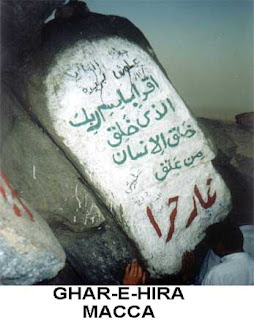 اقرا باسم ربك
الذی خلق
خلق الانسان
من علق
غار حرا
GHAR-E-HIRA
MACCA